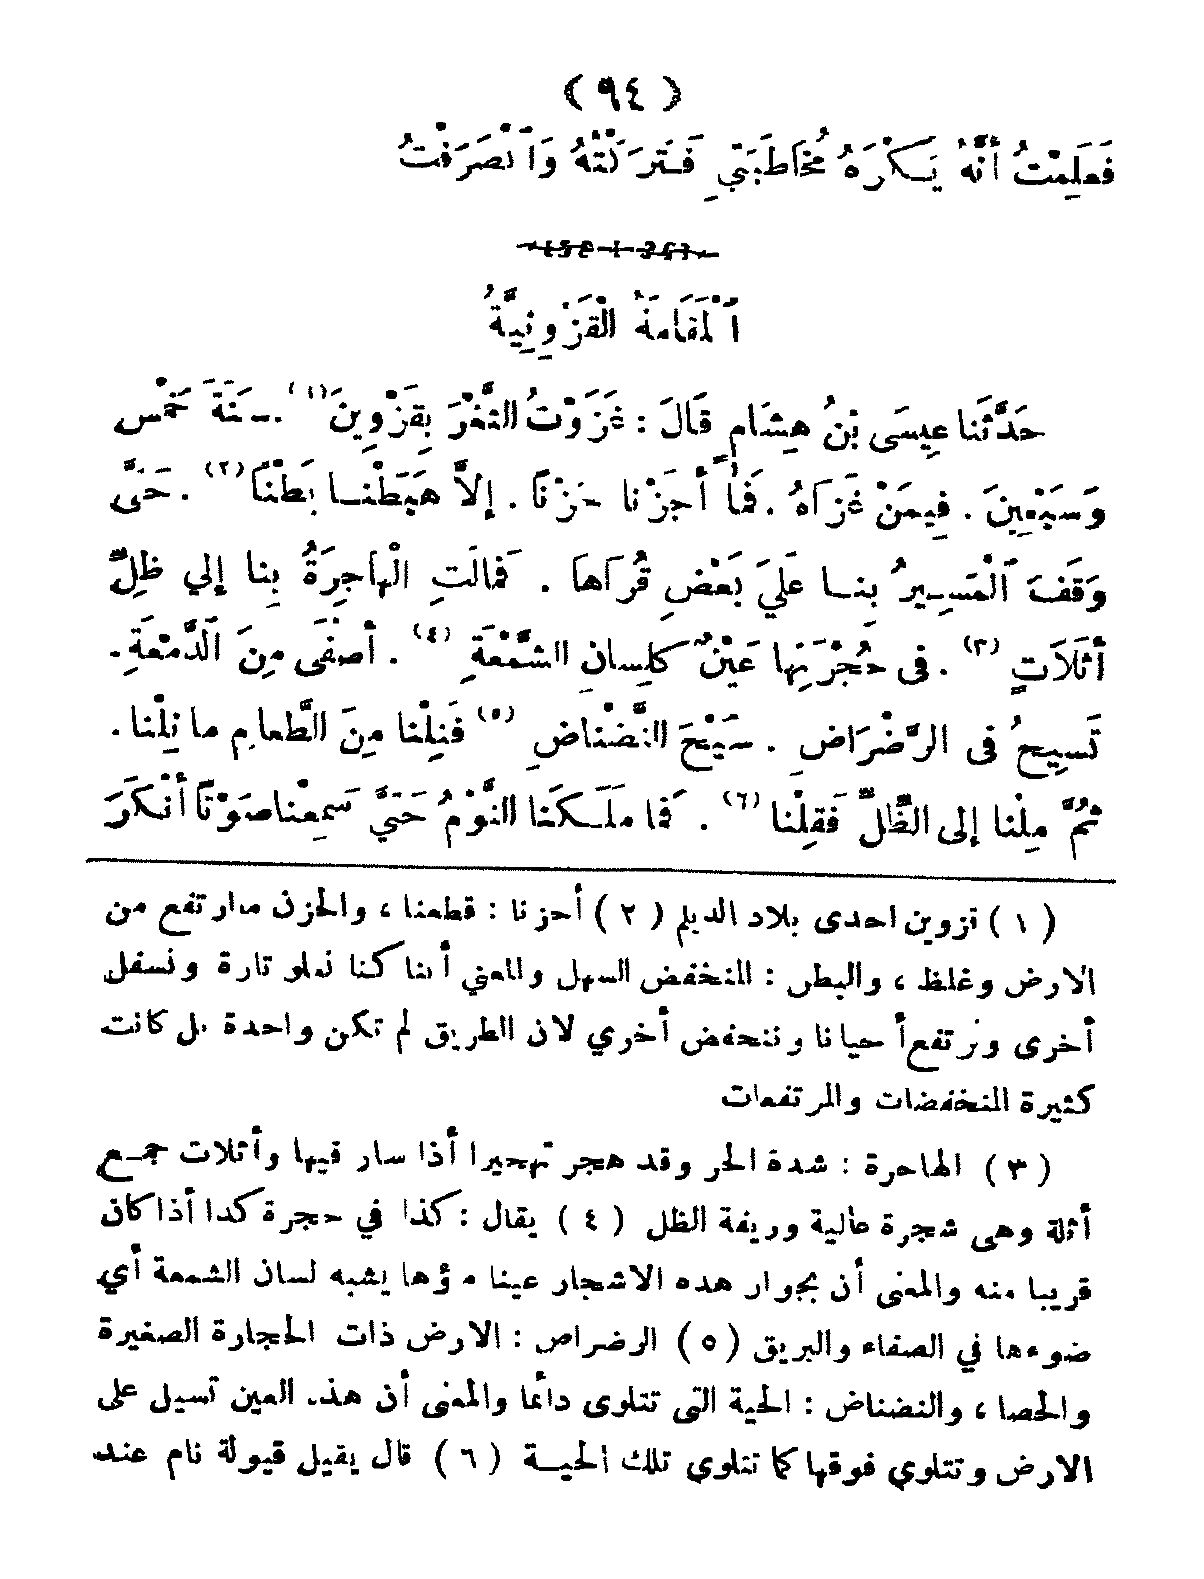 ( ٩٤ )
فَعَلِمْتُ أَنَّهُ يَكْرَهُ مُخَاطَبَتِي فَتَرَكْتُهُ وَٱنْصَرَفْتُ
ٱلْمَقَامَةُ الْقَزْوِنِيَّةُ
حَدَّثَنَا عِيسَى بْنُ هِشَامٍ قَالَ : غَزَوْتُ الثَّغْرَ بِقَزْوِينَ (١) . سَنَةَ خَمْسٍ
وَسَبْعِينَ . فِيمَنْ غَزَاهُ . فَمَا أَجَزْنَا حَزْنًا . إِلاَّ هَبَطْنَا بَطْنًا (٢) . حَتَّى
وَقَفَ ٱلْمَسِيرُ بِنَا عَلَي بَعْضِ قُرَاهَا . فَمَالَتِ الْهَاجِرَةُ بِنا إِلي ظِلِّ
أَثَلاَتٍ (٣) . فِى حُجْرَتِهَا عَيْنٌ كلِسانِ الشَّمْعَةِ (٤) . أَصْفَى مِنَ ٱلدَّمْعَةِ .
تَسِيحُ فى الرَّضْرَاضِ . سَيْحَ النَّضْناضِ (٥) فَنِلْنا مِنَ الطَّعامِ ما نِلْنا .
ثُمَّ مِلْنا إِلى الظِّلِّ فَقِلْنا (٦) . فَمَا مَلَكَنا النَّوْمُ حَتَّي سَمِعْنا صَوْتًا أَنْكَرَ
( ١ ) قزوين احدى بلاد الديلم ( ٢ ) أجزنا : قطعنا ، والحزن ما ارتفع من
الارض وغلظ ، والبطن : المنخفض السهل والمعني أننا كنا نعلو تارة ونسفل
أخرى ونرتفع أحيانا وننخفض أخري لان الطريق لم تكن واحدة بل كانت
كثيرة المنخفضات والمرتفعات
( ٣ ) الهاجرة : شدة الحر وقد هجر تهجيرا أذا سار فيها وأثلات جمع
أثلة وهى شجرة عالية وريفة الظل ( ٤ ) يقال : كذا في حجرة كذا أذا كان
قريبا منه والمعنى أن بجوار هذه الاشجار عينا ماؤها يشبه لسان الشمعة أي
ضوءها في الصفاء والبريق ( ٥ ) الرضراض : الارض ذات الحجارة الصغيرة
والحصا ، والنضناض : الحية التى تتلوى دائما والمعنى أن هذه العين تسيل على
الارض وتتلوي فوقها كما تتلوي تلك الحية ( ٦ ) قال يقيل قيولة نام عند